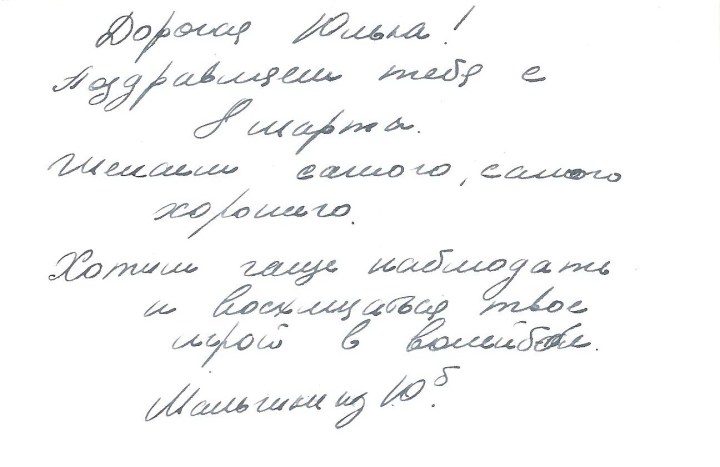 Дорогая Юлька!
Поздравляем тебя с
8 марта.
Желаем самого, самого
хорошего.
Хотим чаще наблюдать
и восхищаться твое
игрой в волейбол.
Мальчики из 10б.